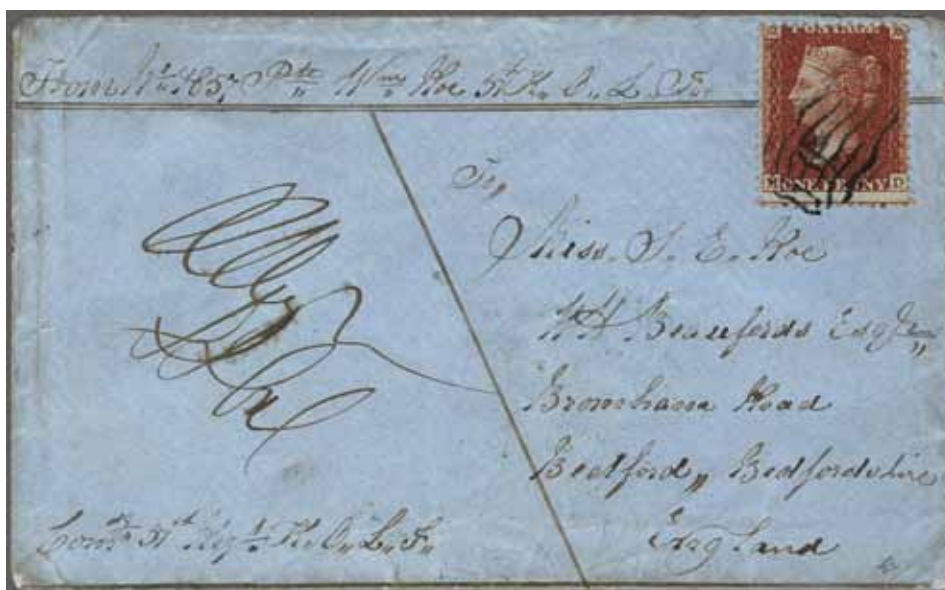 From No. 1857 Pte. Wm. Roe 51st K. O. L. I.
POSTAGE
M ONE PENNY D
To,,
Miss. S. E. Roe
Beaufords Esqre,,
Bromham Road
Bedford,, Bedfordshire
England
Comdg 51st Regt. K. O. L. I.